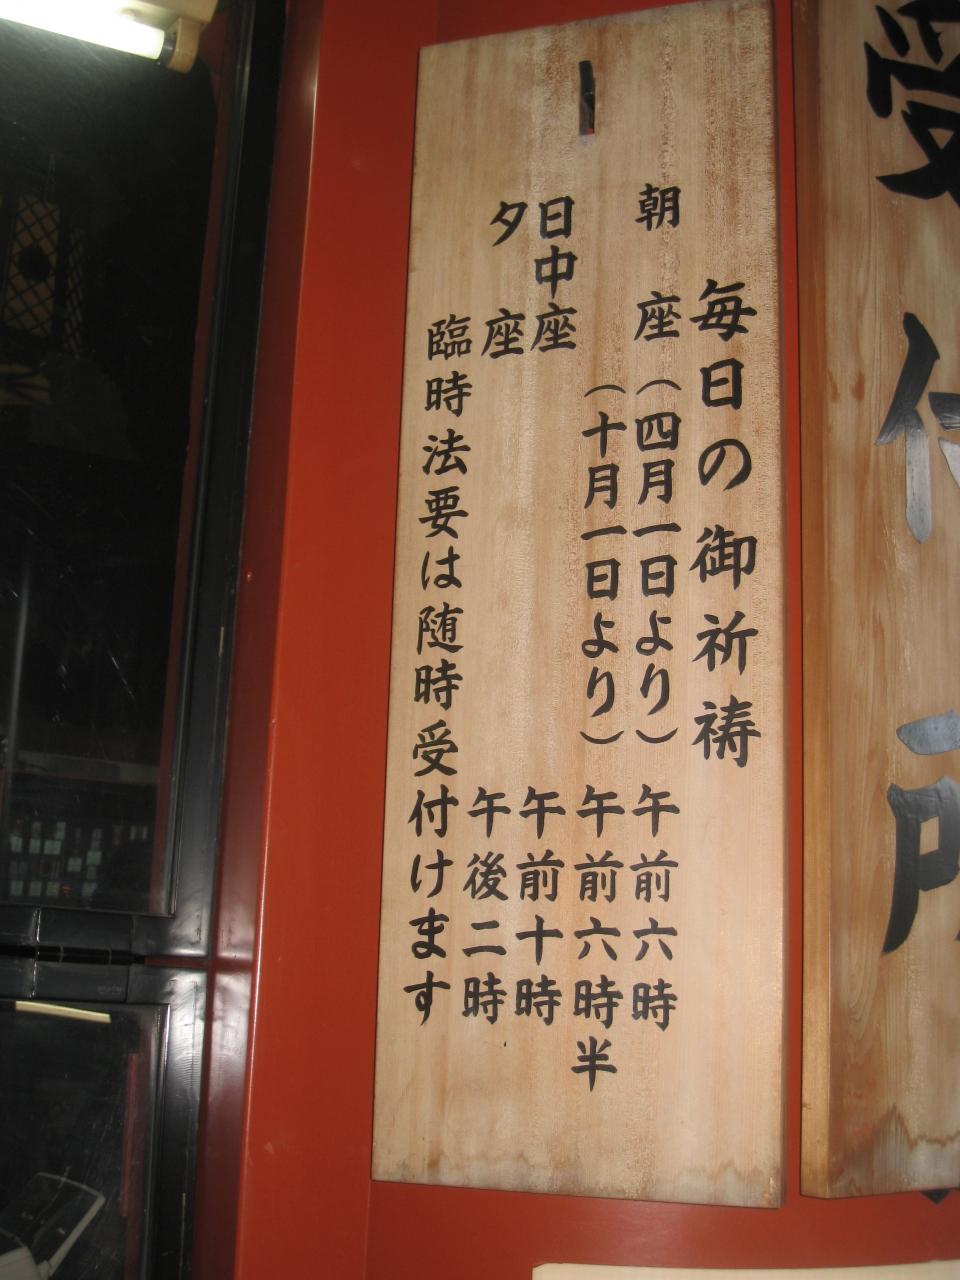 受付所
毎日の御祈祷
朝座（四月一日より）午前六時
（十月一日より）午前六時半
日中座 午前十時
夕座 午後二時
臨時法要は随時受付けます